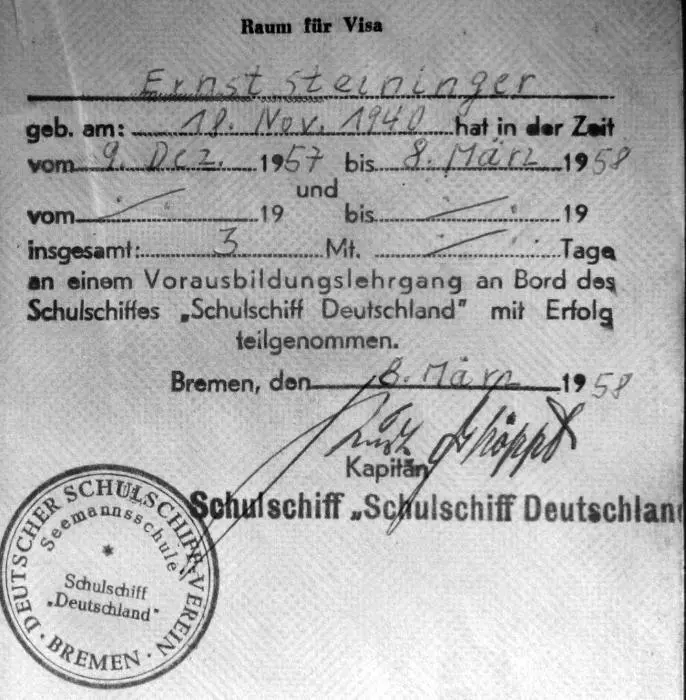 Raum für Visa
Ernst Steininger
geb. am: 18. Nov. 1940 hat in der Zeit
vom 9. Dez. 1957 bis 8. März 1958
und
vom ./. 19 bis ./. 19
insgesamt: 3 Mt. ./. Tage
an einem Vorausbildungslehrgang an Bord des
Schulschiffes „Schulschiff Deutschland" mit Erfolg
teilgenommen.
Bremen, den 8. März 1958
Kapitän
Schulschiff „Schulschiff Deutschland
DEUTSCHER SCHULSCHIFF-VEREIN
Seemannsschule
*
Schulschiff
„Deutschland"
· BREMEN ·